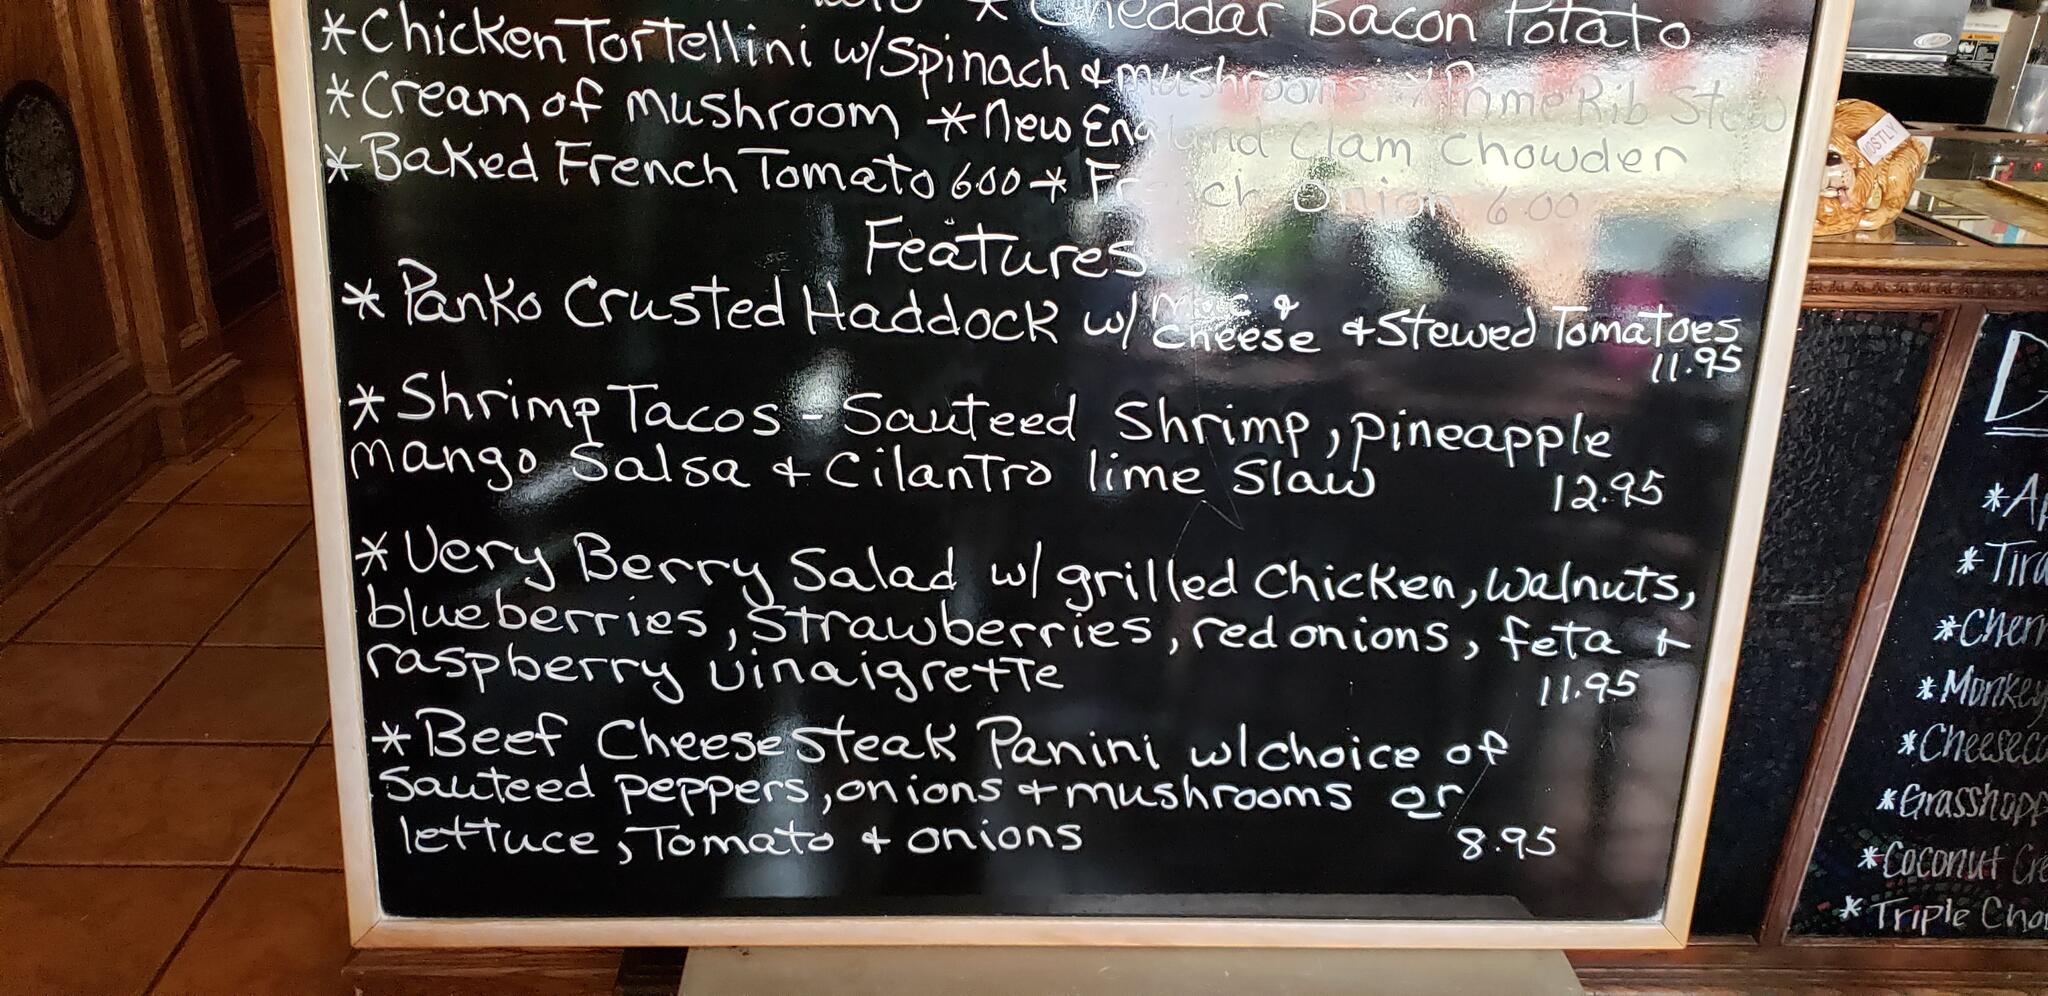 * Cheddar Bacon Potato
*Chicken Tortellini w/Spinach & mushrooms * Prime Rib Stew
*Cream of mushroom *New England Clam Chowder
*Baked French Tomato 6.00 * French Onion 6.00
Features
* Panko Crusted Haddock w/ mac & cheese & Stewed Tomatoes
11.95
* Shrimp Tacos - Sauteed Shrimp, pineapple
mango Salsa & Cilantro lime Slaw 12.95
*Very Berry Salad w/ grilled Chicken, walnuts,
blueberries, strawberries, red onions, feta &
raspberry vinaigrette 11.95
*Beef Cheesesteak Panini w/choice of
Sauteed peppers, onions & mushrooms or
lettuce, Tomato & onions 8.95
MOSTLY
*Tira
*Cherr
*Monkey
*Cheeseca
*Grasshopp
*Coconut Cre
*Triple Cho